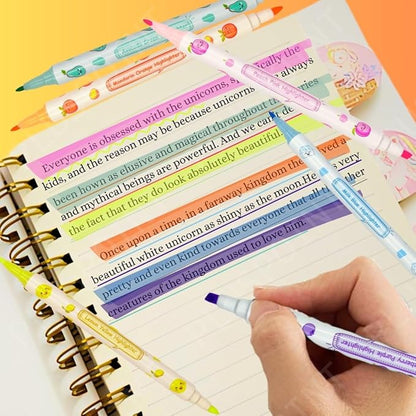 Mandarin Orange Highlighter
Peach Pink Highlighter
Everyone is obsessed with the unicorns, specifically the
kids, and the reason may be because unicorns always
been hown as elusive and magical throughout the stories
and mythical beings are powerful. And we can't deny
the fact that they do look absolutely beautiful.
Once upon a time, in a faraway kingdom the lived a
beautiful white unicorn as shiny as the moon.He very
pretty and even kind towards everyone that all the other
creatures of the kingdom used to love him.
Blue Highlighter
Lemon Yellow Highlighter
Purple Highlighter